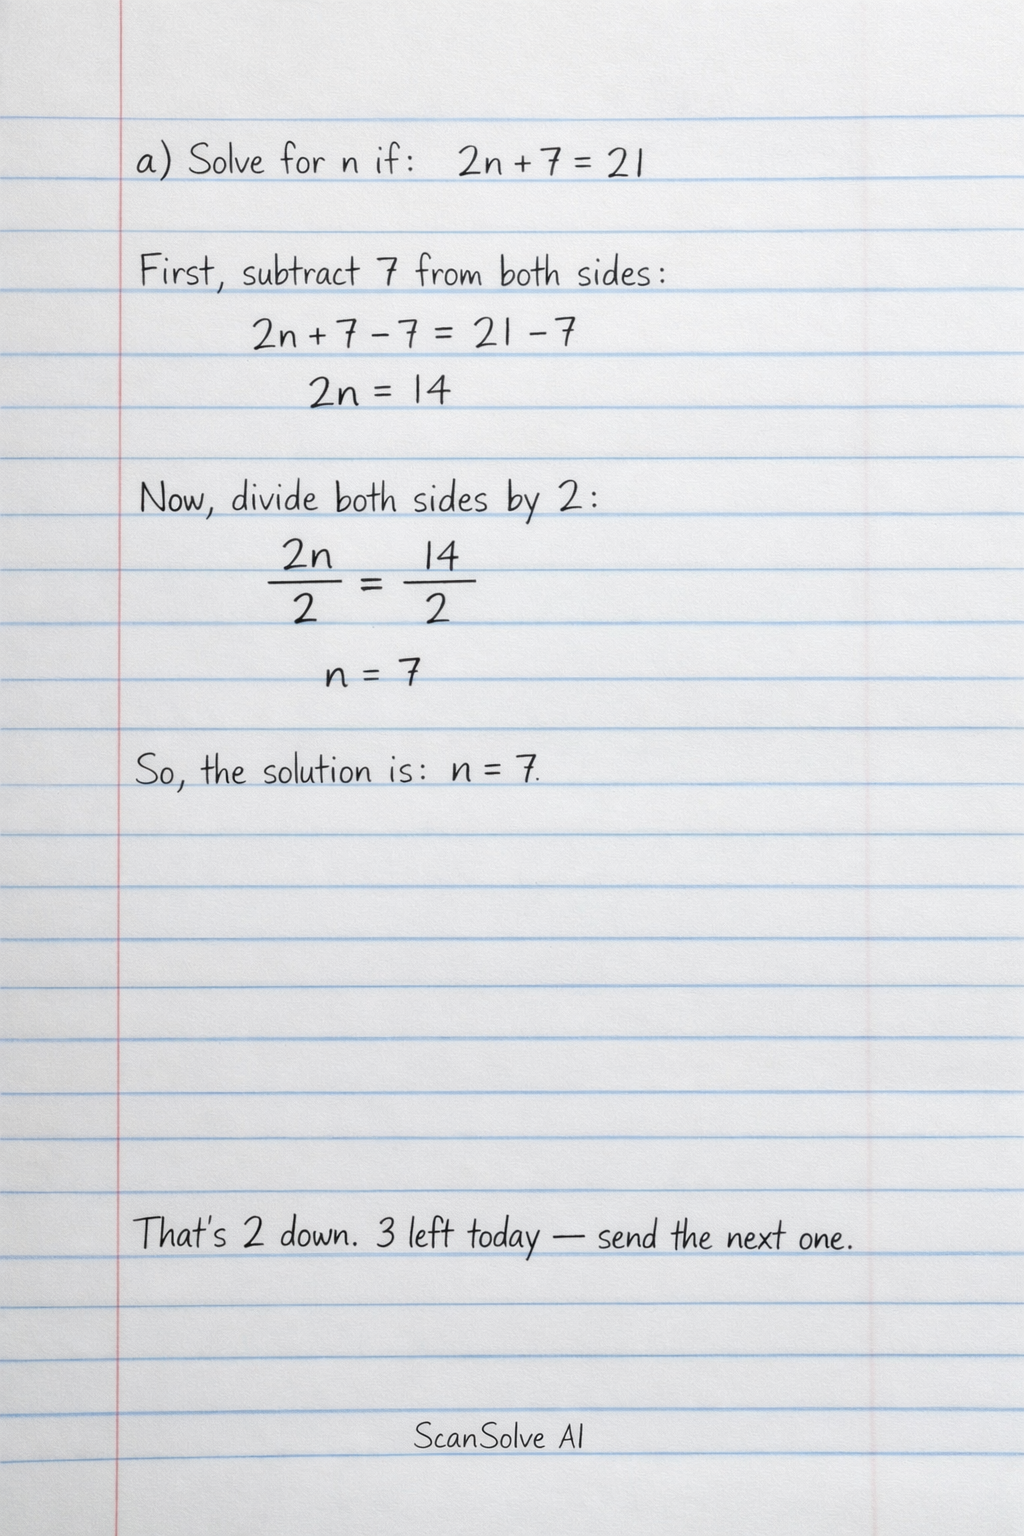 a) Solve for n if: 2n + 7 = 21
First, subtract 7 from both sides:
2n + 7 - 7 = 21 - 7
2n = 14
Now, divide both sides by 2:
2n/2 = 14/2
n = 7
So, the solution is: n = 7.
That's 2 down. 3 left today — send the next one.
ScanSolve AI